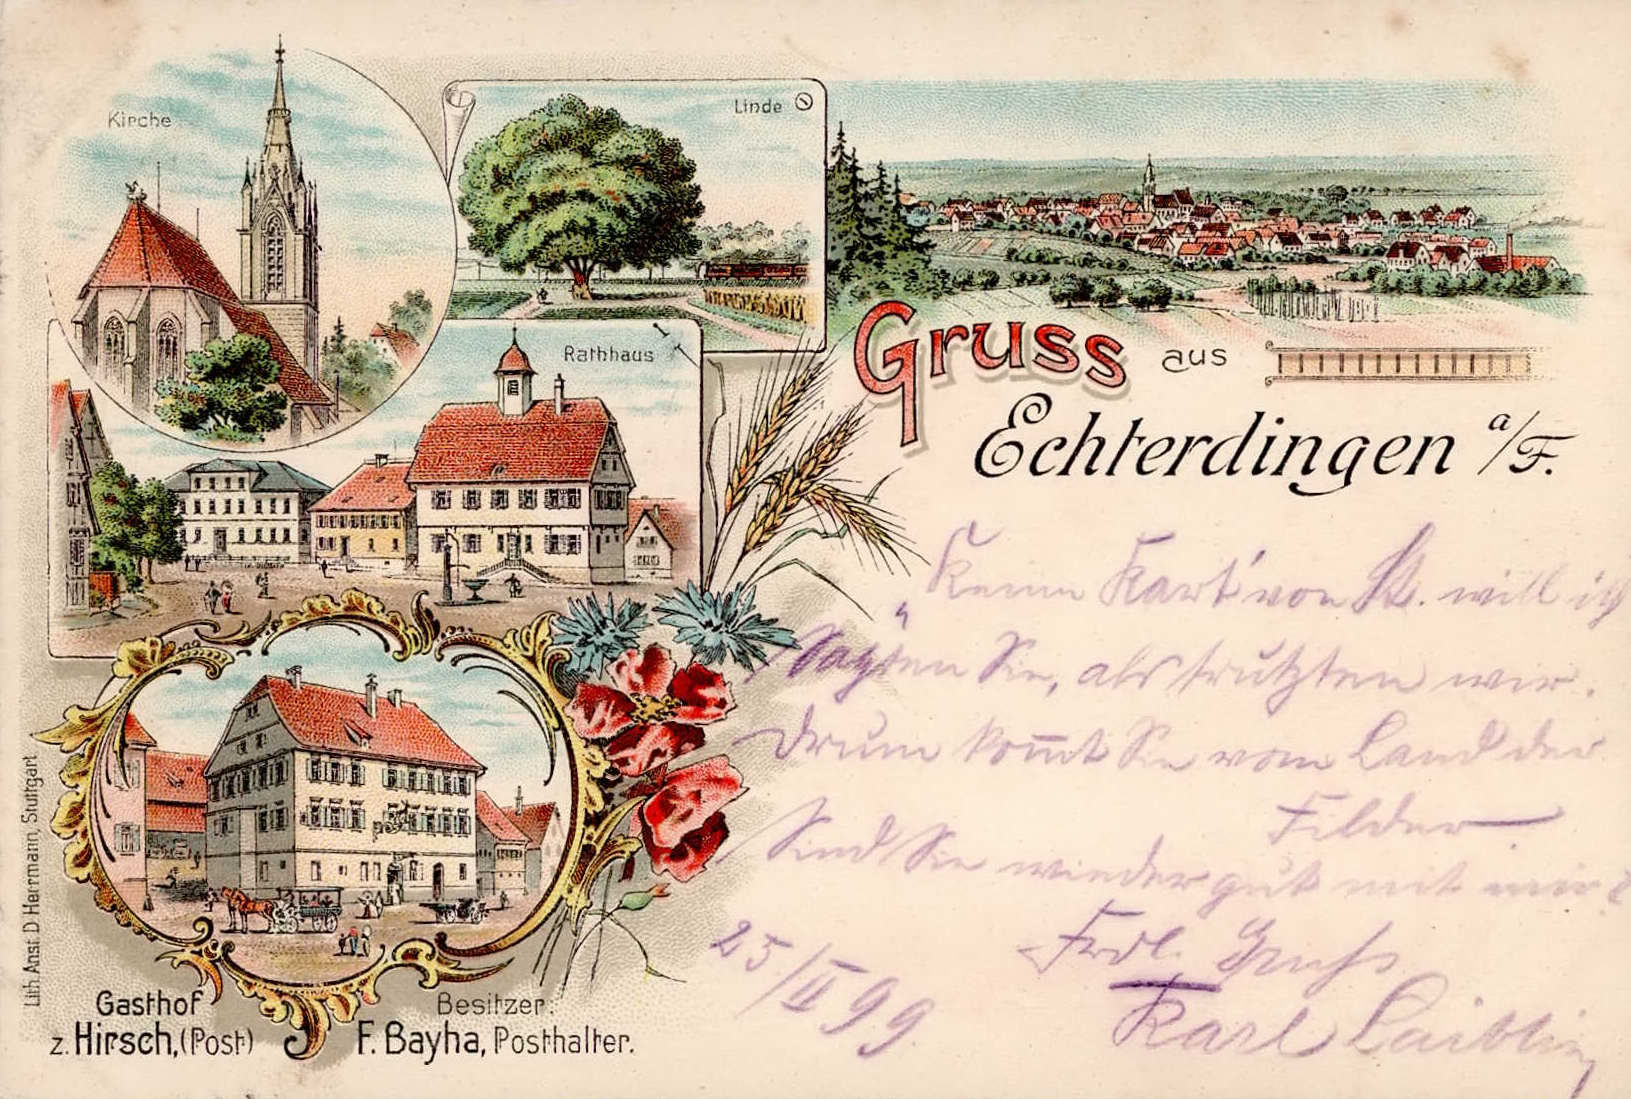 Kirche
Linde
Rathhaus
Gruss aus
Echterdingen a/F.
Keine Kart' von St. will ich
Sie, als
Drum kom̅t Sie vom Land der
Filder
Sind Sie wieder gut mit mir?
Frdl. Gruß
25/II 99.
Karl Laibling
Gasthof
z. Hirsch, (Post)
Besitzer:
F. Bayha, Posthalter.
Lith. Anst. D Herrmann, Stuttgart